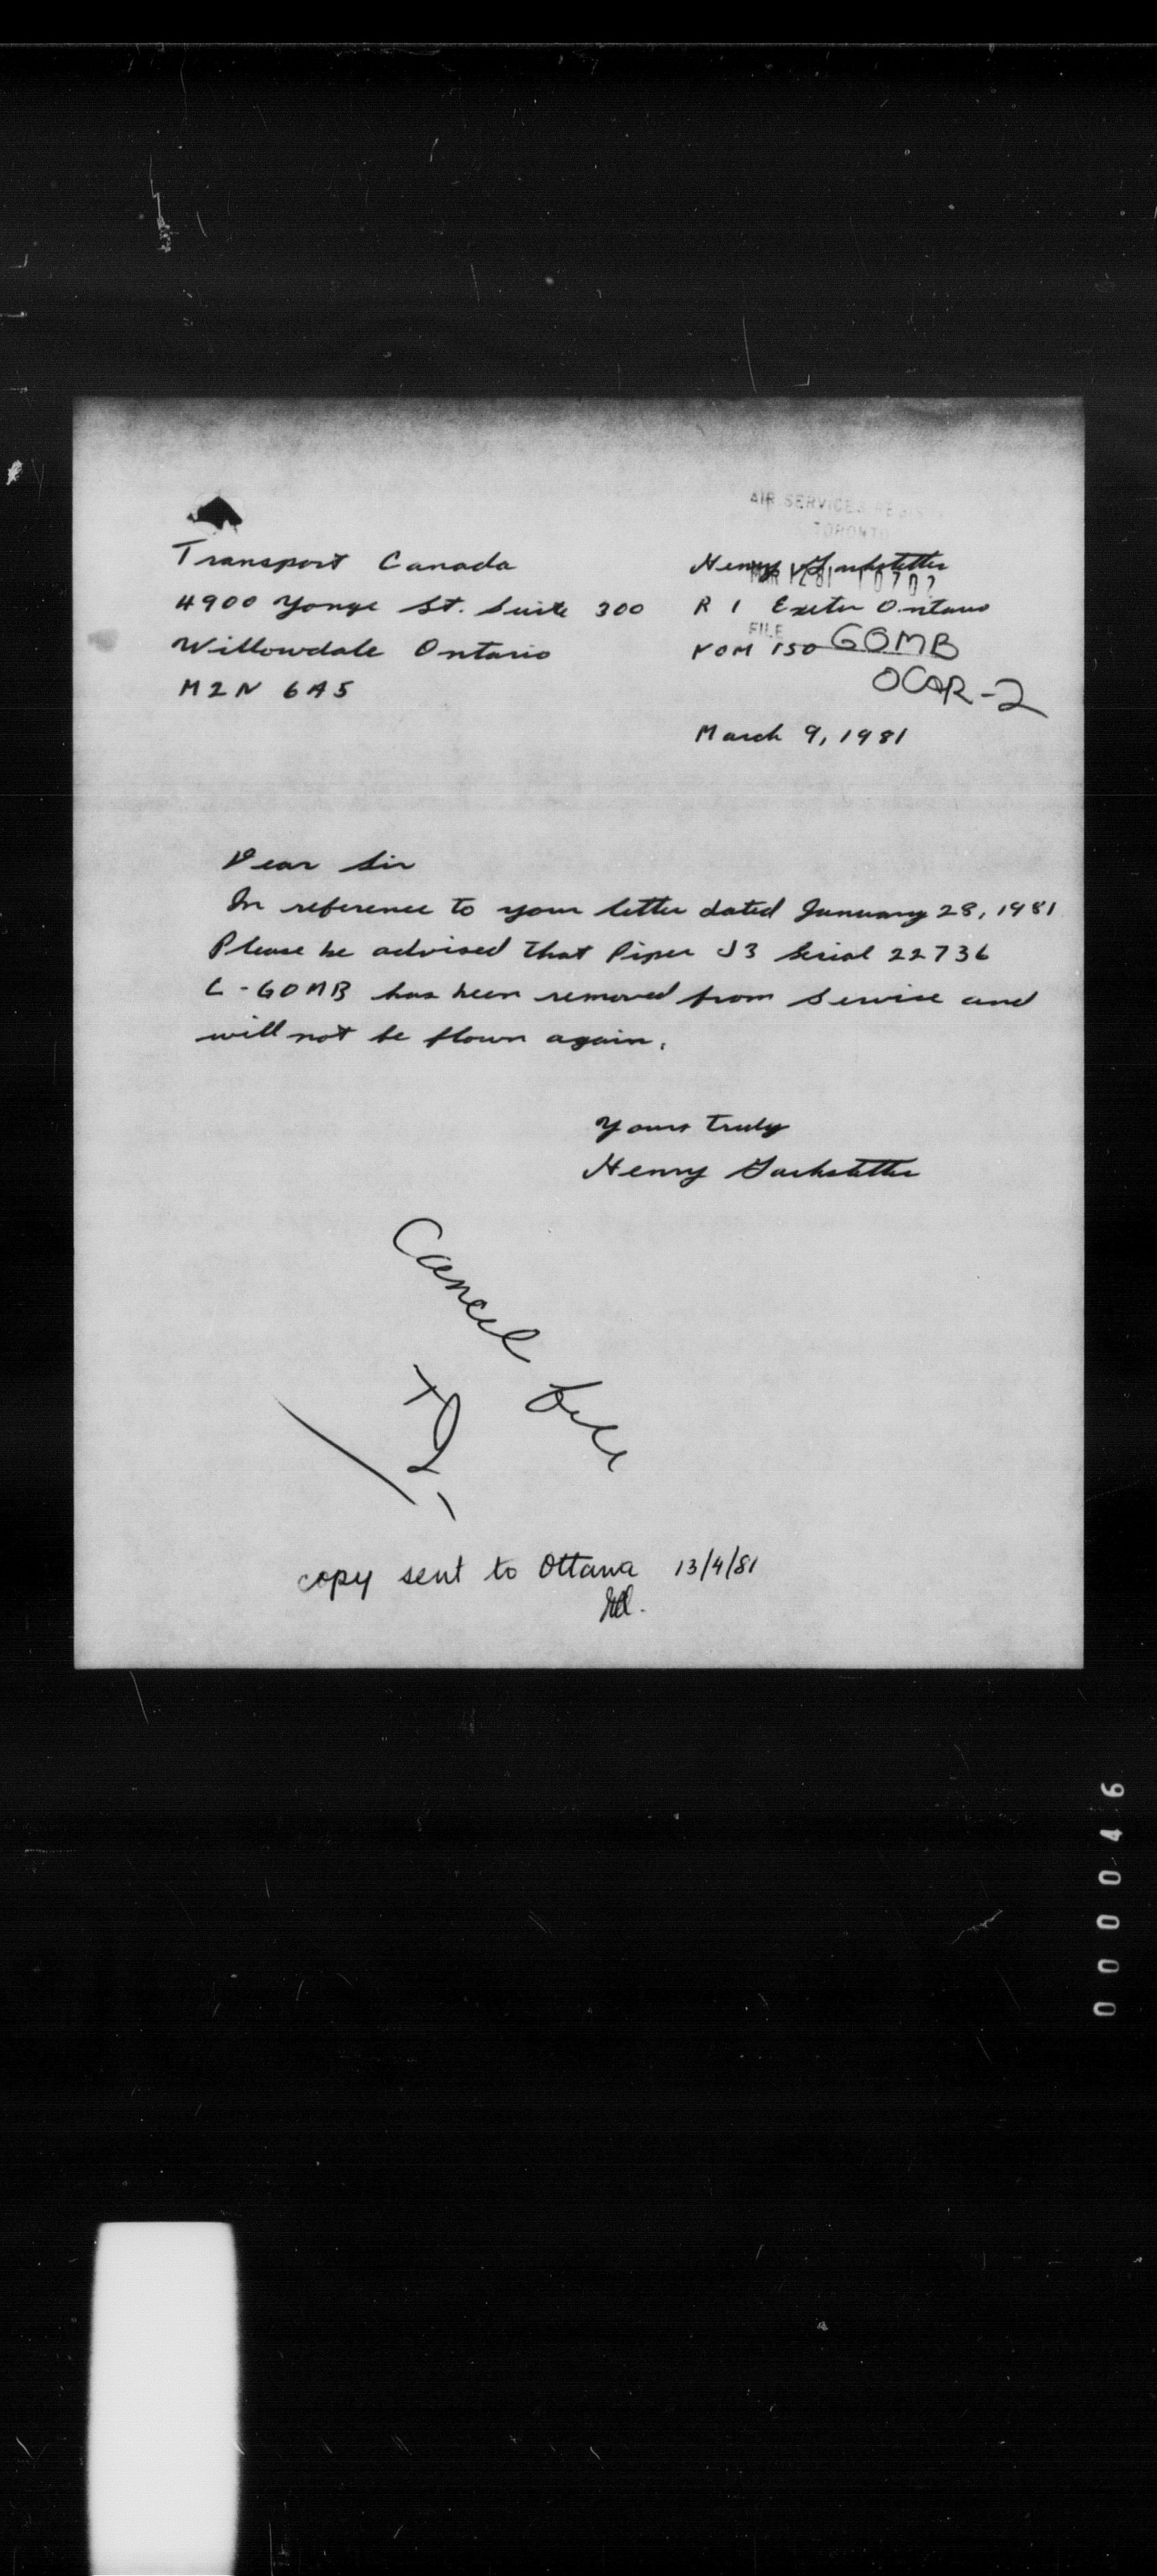 AIR SERVICES REGIS
TORONTO
Transport Canada
4900 Yonge St. Suite 300
Willowdale Ontario
M2N 6A5
Henry
R 1 Exeter Ontario
FILE
NOM 1S0 GOMB
OCAR-2
March 9, 1981
Dear Sir
In reference to your letter dated January 28, 1981
Please be advised that Piper J3 Serial 22736
C-GOMB has been removed from service and
will not be flown again.
Yours truly
Henry
Cancel file
copy sent to Ottawa 13/4/81
000046